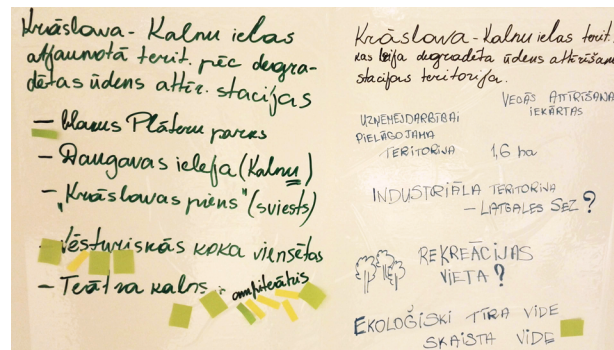 Krāslava - Kalnu ielas
atjaunotā terit. pēc degra-
dētas ūdens attīr. stacijas
- blakus Plāteru parks
- Daugavas ieleja (Kalnu)
- "Krāslavas piens" (sviests)
- Vēsturiskās koka viensētas
- Teātra kalns - amfiteātris
Krāslava - Kalnu ielas terit.
kas bija degradēta ūdens attīrīšanas
stacijas teritorija.
VECĀS ATTĪRĪŠANA
IEKĀRTAS
UZŅĒMĒJDARBĪBAI
PIELĀGOJAMA
TERITORIJA 1,6 ha
INDUSTRIĀLA TERITORIJA
- LATGALES SEZ ?
REKREĀCIJAS
VIETA ?
EKOLOĢISKI TĪRA VIDE
SKAISTA VIDE